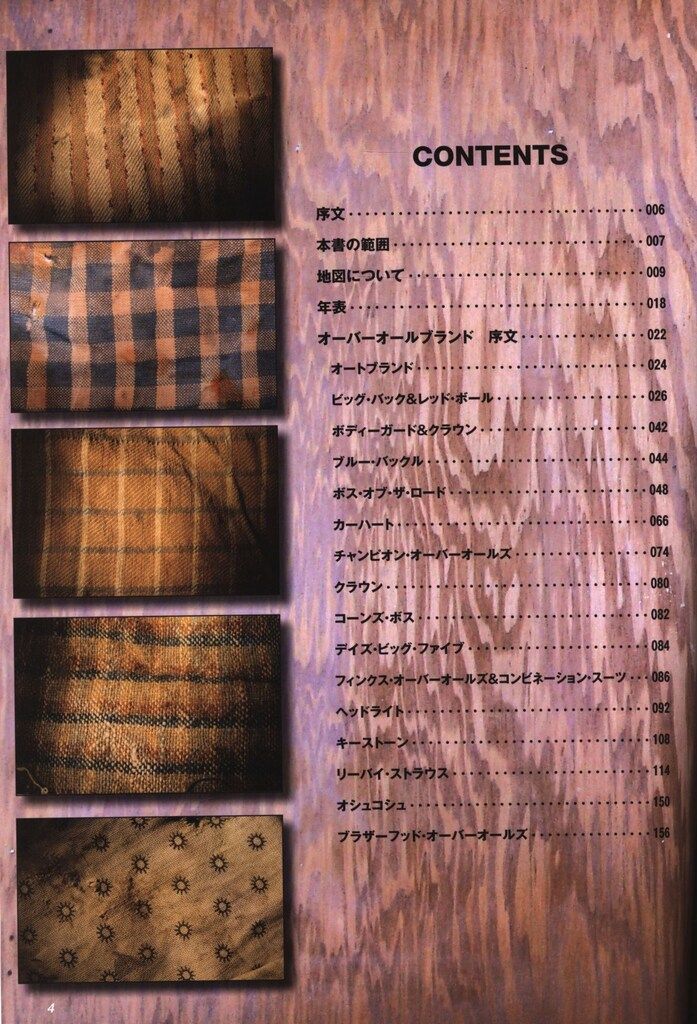 CONTENTS
序文・・・・・・・・・・・・・・・・・・・・・・・・・・・・・・006
本書の範囲・・・・・・・・・・・・・・・・・・・・・・・・・・007
地図について・・・・・・・・・・・・・・・・・・・・・・・・009
年表・・・・・・・・・・・・・・・・・・・・・・・・・・・・・・018
オーバーオールブランド　序文・・・・・・・・・・・・022
オートブランド・・・・・・・・・・・・・・・・・・・・・・・024
ビッグ・バック&レッド・ボール・・・・・・・・・・・・・・・026
ボディーガード&クラウン・・・・・・・・・・・・・・・・・042
ブルー・バックル・・・・・・・・・・・・・・・・・・・・・・044
ボス・オブ・ザ・ロード・・・・・・・・・・・・・・・・・・・・048
カーハート・・・・・・・・・・・・・・・・・・・・・・・・・066
チャンピオン・オーバーオールズ・・・・・・・・・・・・・074
クラウン・・・・・・・・・・・・・・・・・・・・・・・・・・080
コーンズ・ボス・・・・・・・・・・・・・・・・・・・・・・・082
デイズ・ビッグ・ファイブ・・・・・・・・・・・・・・・・・・084
フィンクス・オーバーオールズ&コンビネーション・スーツ・・・086
ヘッドライト・・・・・・・・・・・・・・・・・・・・・・・・092
キーストーン・・・・・・・・・・・・・・・・・・・・・・・・108
リーバイ・ストラウス・・・・・・・・・・・・・・・・・・・・114
オシュコシュ・・・・・・・・・・・・・・・・・・・・・・・・150
ブラザーフッド・オーバーオールズ・・・・・・・・・・・・156
4